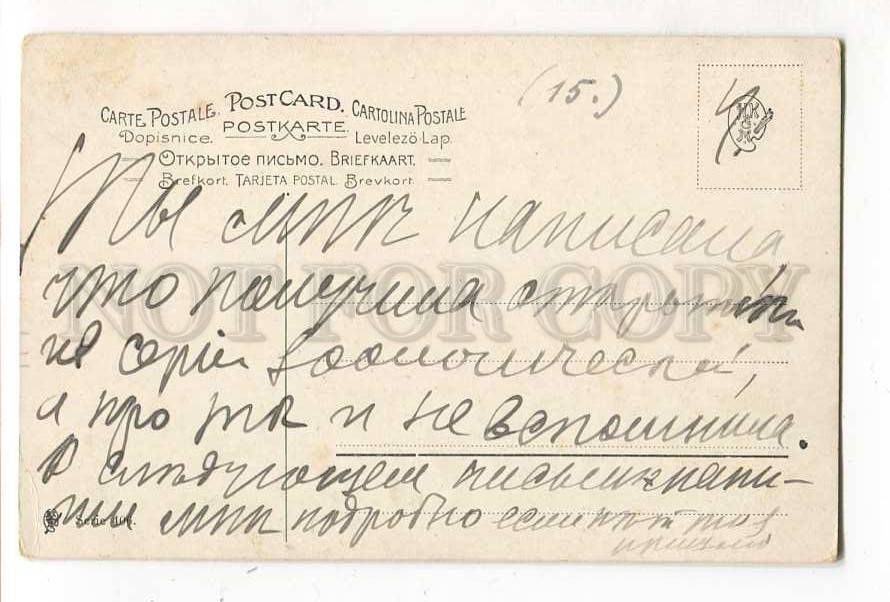 (15.)
4.
CARTE POSTALE. POST CARD. CARTOLINA POSTALE
Dopisnice. POSTKARTE. Levelező-Lap.
ОТКРЫТОЕ ПИСЬМО. BRIEFKAART.
Brefkort. TARJETA POSTAL. Brevkort.
Ты мнѣ написала
что получила открытки
не серіи зоологической,
а про тѣ и не вспомнила.
В слѣдующем письмѣ напи-
ши мнѣ подробно если
Serie 106.
NOT FOR COPY